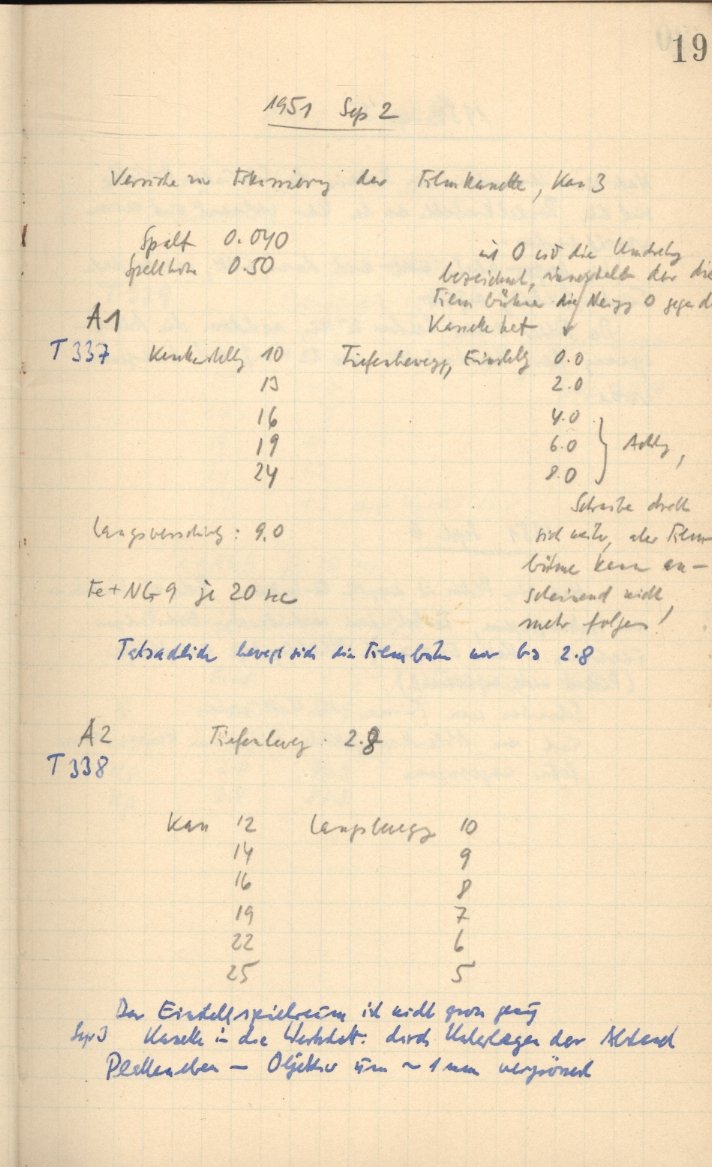 19
1951 Sep 2
Versuche zur Fokussierung der Filmkassette, Kam 3
Spalt 0.040
Spalthöhe 0.50
mit 0 ist die Umdrehg
bezeichnet, innerhalb der die
Filmbühne die Neigg 0 gegen d
Kassette hat
A1
T337
10 Tiefenbewegg, Einstellg 0.0
13 2.0
16 4.0
19 6.0 Achtg,
24 8.0
Längsverschiebg: 9.0
Schraube dreht
sich weiter, aber Film-
bühne kann an-
scheinend nicht
mehr folgen!
Fe+NG 9 je 20 sec
Tatsächlich bewegt sich die Filmbühne nur bis 2.8
A2 Tiefenbeweg. 2.8
T338
Kam 12 Längsbewegg 10
14 9
16 8
19 7
22 6
25 5
Der Einstellspielraum ist nicht gross genug
Sep 3 Kassette in die Werkstatt: durch Unterlagen der Abstand
Plattenebene — Objektiv um ~ 1 mm vergrössert